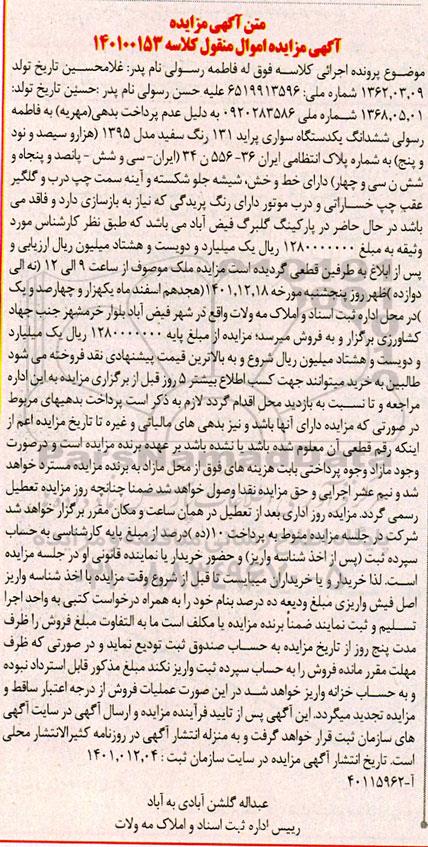 متن آگهی مزایده
آگهی مزایده اموال منقول کلاسه ۱۴۰۱۰۰۱۵۳
موضوع پرونده اجرائی کلاسه فوق له فاطمه رسولی نام پدر: غلامحسین تاریخ تولد
۱۳۶۲,۰۳,۰۹ شماره ملی: ۶۵۱۹۹۱۳۵۹۶ علیه حسن رسولی نام پدر :حسین تاریخ تولد:
۱۳۶۸,۰۵,۰۱ شماره ملی ۰۹۲۰۲۸۳۵۸۶ به دلیل عدم پرداخت بدهی(مهریه) به فاطمه
رسولی ششدانگ یکدستگاه سواری پراید ۱۳۱ رنگ سفید مدل ۱۳۹۵ (هزارو سیصد و نود
و پنج) به شماره پلاک انتظامی ایران ۳۶- ۵۵۶ ن ۳۴ (ایران- سی و شش - پانصد و پنجاه و
شش ن سی و چهار) دارای خط و خش، شیشه جلو شکسته و آینه سمت چپ درب و گلگیر
عقب چپ خساراتی و درب موتور دارای رنگ پریدگی که نیاز به بازسازی دارد و فاقد می
باشد در حال حاضر در پارکینگ گلبرگ فیض آباد می باشد که طبق نظر کارشناس مورد
وثیقه به مبلغ ۱۲۸۰۰۰۰۰۰۰ ریال یک میلیارد و دویست و هشتاد میلیون ریال ارزیابی و
پس از ابلاغ به طرفین قطعی گردیده است مزایده ملک موصوف از ساعت ۹ الی ۱۲ (نه الی
دوازده )ظهر روز پنجشنبه مورخه ۱۴۰۱,۱۲,۱۸(هجدهم اسفند ماه یکهزار و چهارصد و یک
)در محل اداره ثبت اسناد و املاک مه ولات واقع در شهر فیض آباد بلوار خرمشهر جنب جهاد
کشاورزی برگزار و به فروش میرسد؛ مزایده از مبلغ پایه ۱۲۸۰۰۰۰۰۰۰ ریال یک میلیارد
و دویست و هشتاد میلیون ریال شروع و به بالاترین قیمت پیشنهادی نقد فروخته می شود
طالبین به خرید میتوانند جهت کسب اطلاع بیشتر ۵ روز قبل از برگزاری مزایده به این اداره
مراجعه و تا نسبت به بازدید محل اقدام گردد لازم به ذکر است پرداخت بدهیهای مربوط
در صورتی که مزایده دارای آنها باشد و نیز بدهی های مالیاتی و غیره تا تاریخ مزایده اعم از
اینکه رقم قطعی آن معلوم شده باشد یا نشده باشد بر عهده برنده مزایده است و درصورت
وجود مازاد وجوه پرداختی بابت هزینه های فوق از محل مازاد به برنده مزایده مسترد خواهد
شد و نیم عشر اجرایی و حق مزایده نقدا وصول خواهد شد ضمنا چنانچه روز مزایده تعطیل
رسمی گردد. مزایده روز اداری بعد از تعطیل در همان ساعت و مکان مقرر برگزار خواهد شد
شرکت در جلسه مزایده منوط به پرداخت ۱۰(ده )درصد از مبلغ پایه کارشناسی به حساب
سپرده ثبت (پس از اخذ شناسه واریز) و حضور خریدار یا نماینده قانونی او در جلسه مزایده
است. لذا خریدار و یا خریداران میبایست تا قبل از شروع وقت مزایده با اخذ شناسه واریز
اصل فیش واریزی مبلغ ودیعه ده درصد بنام خود را به همراه درخواست کتبی به واحد اجرا
تسلیم و ثبت نمایند ضمنا برنده مزایده یا مکلف است ما به التفاوت مبلغ فروش را ظرف
مدت پنج روز از تاریخ مزایده به حساب صندوق ثبت تودیع نماید و در صورتی که ظرف
مهلت مقرر مانده فروش را به حساب سپرده ثبت واریز نکند مبلغ مذکور قابل استرداد نبوده
و به حساب خزانه واریز خواهد شد در این صورت عملیات فروش از درجه اعتبار ساقط و
مزایده تجدید میگردد. این آگهی پس از تایید فرآینده مزایده و ارسال آگهی در سایت آگهی
های سازمان ثبت قرار خواهد گرفت و به منزله انتشار آگهی در روزنامه کثیرالانتشار محلی
است. تاریخ انتشار آگهی مزایده در سایت سازمان ثبت : ۱۴۰۱,۰۱۲,۰۴
آ-۴۰۱۱۵۹۶۲
عبداله گلشن آبادی به آباد
رییس اداره ثبت اسناد و املاک مه ولات